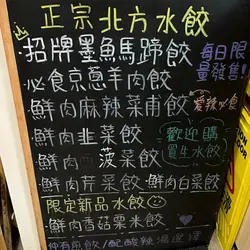 正宗北方水餃
·招牌墨魚馬蹄餃
每日限量發售!
·必食京蔥羊肉餃
·鮮肉麻辣菜甫餃
愛辣必食
·鮮肉韭菜餃
·鮮肉菠菜餃
歡迎購買生水餃
·鮮肉芹菜餃·鮮肉白菜餃
限定新品水餃
·鮮肉香菇粟米餃
仲有煎餃/配酸辣湯選擇